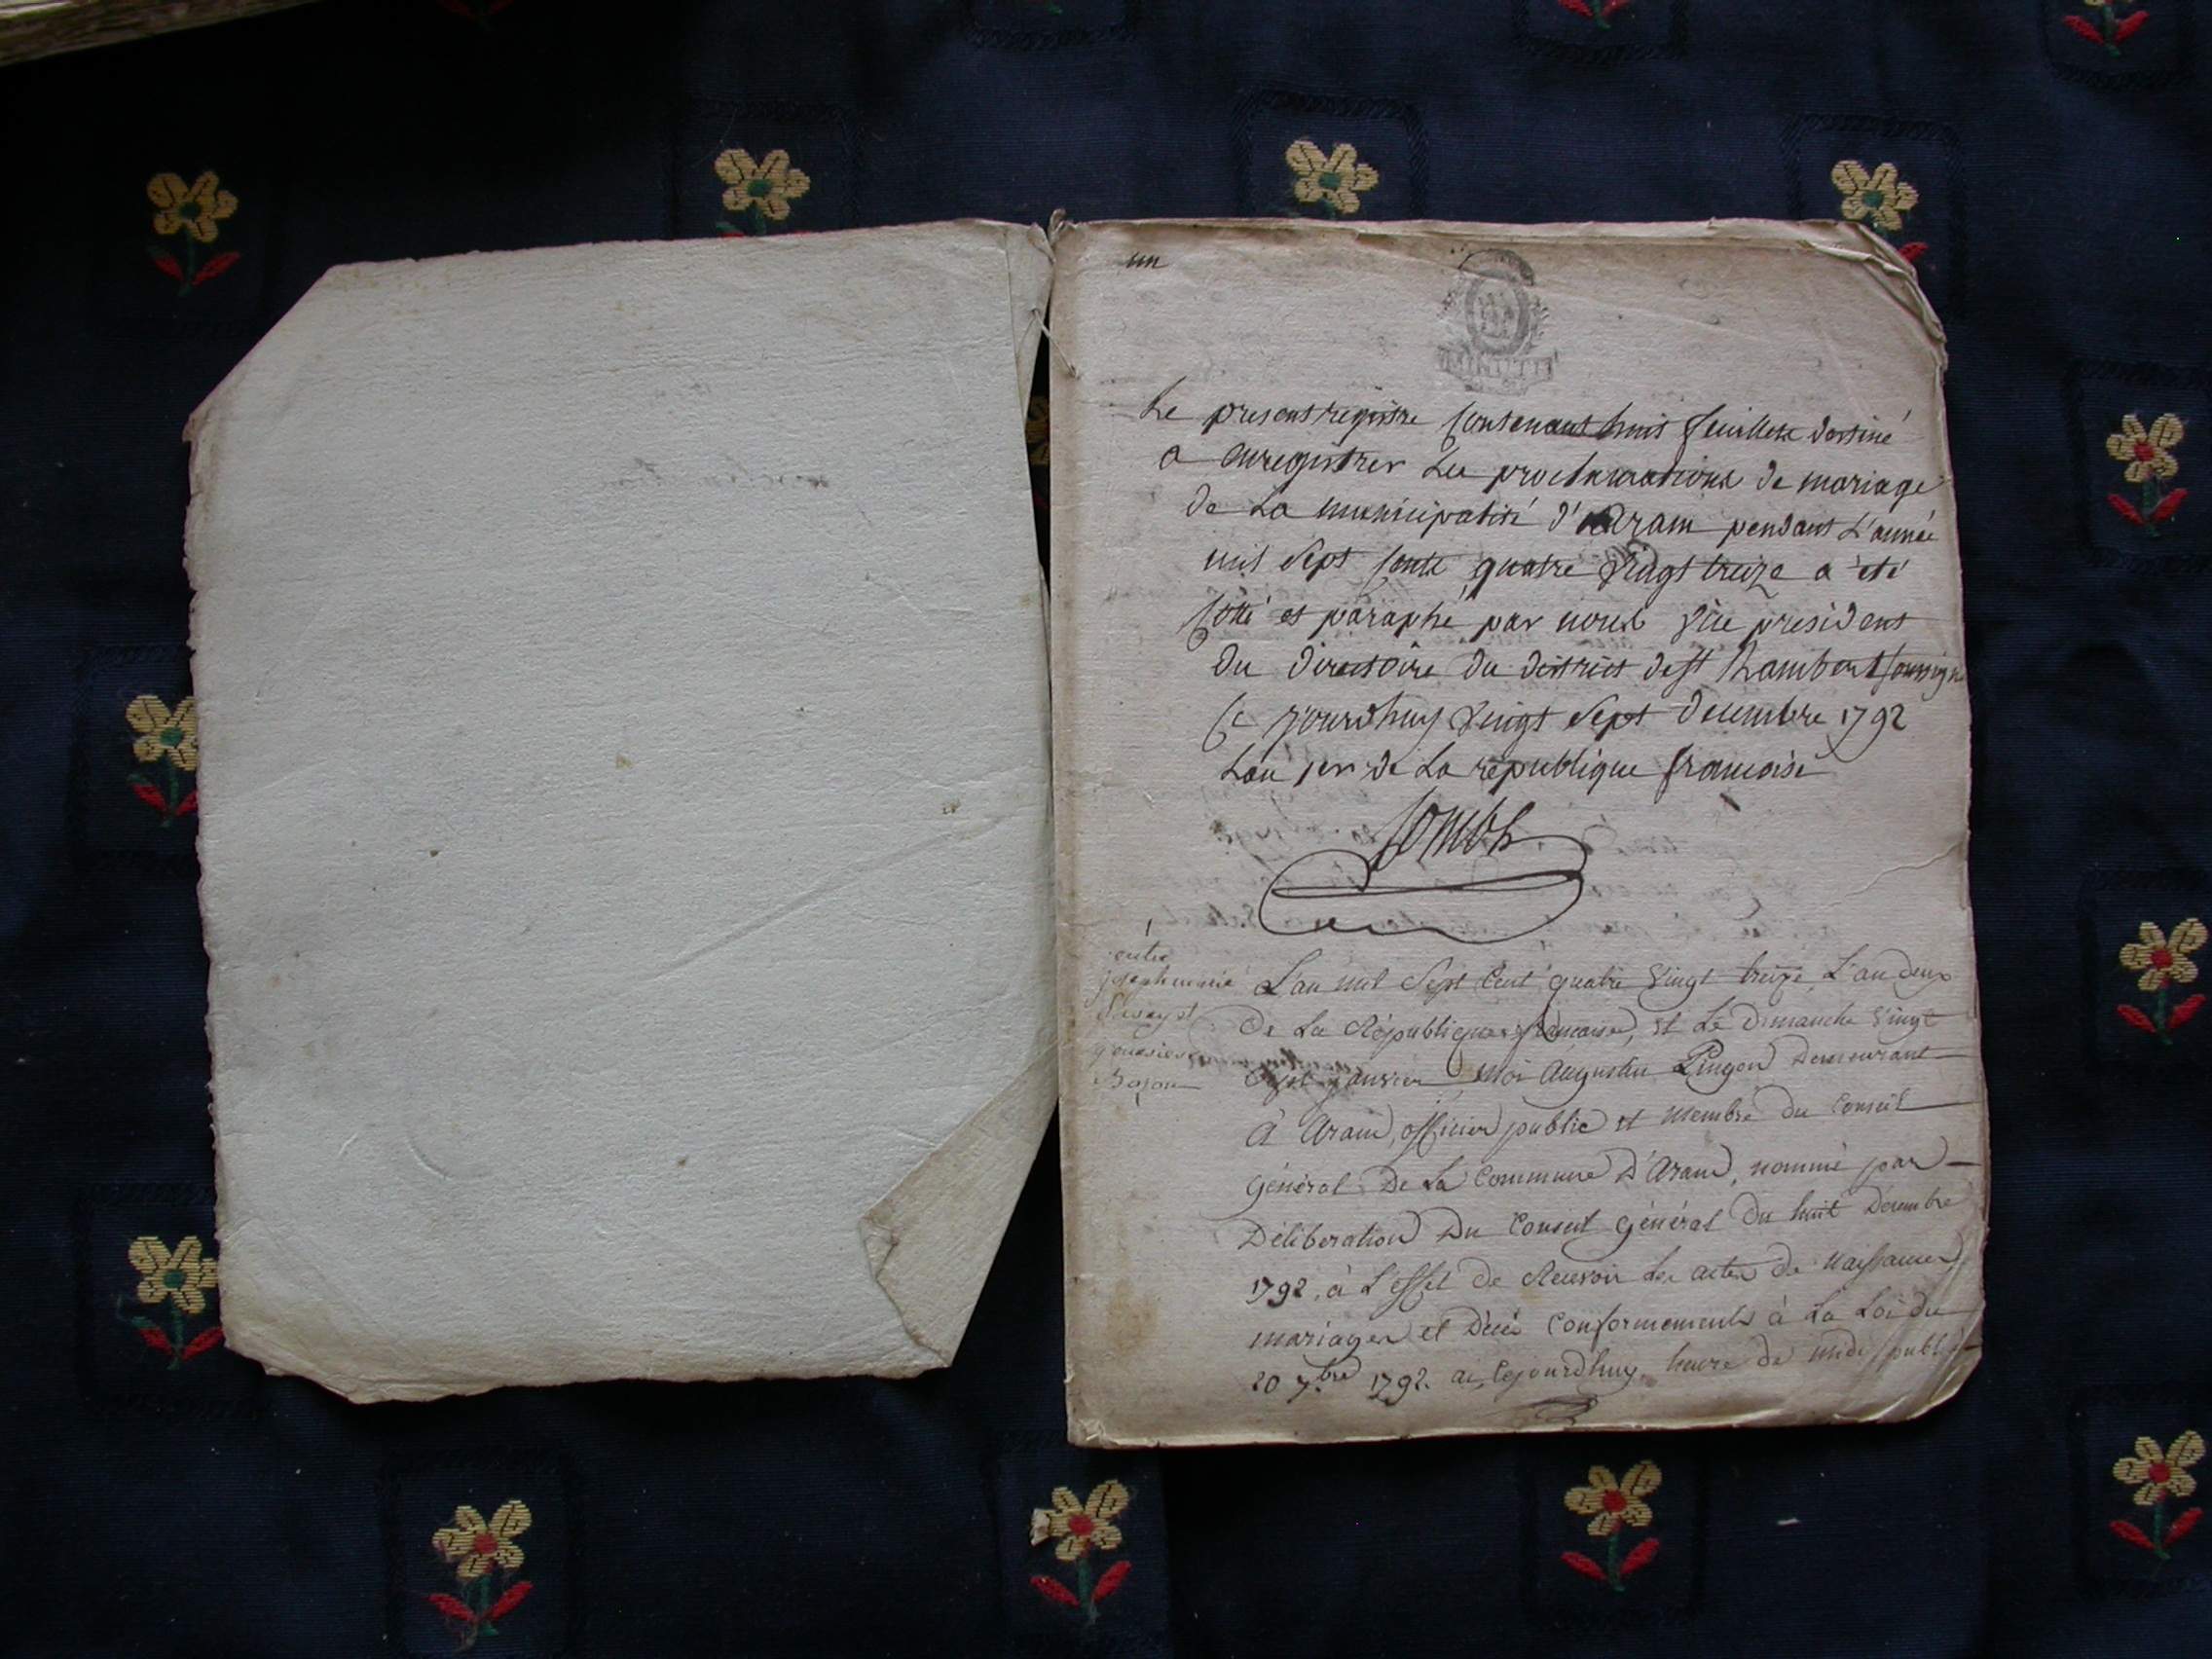 un
MINUTE
Le present registre contenant huit feuillets destiné
a enregistrer les proclamations de mariage
de la municipalité d'Arain pendant l'année
mil sept cents quatre vingt treize a été
cotté et paraphé par nous vice president
du directoire du district de st Rambert soussigné
ce jourdhuy vingt sept decembre 1792
L'an 1er de la république francoise
entre
joseph marie
L'an mil sept cent quatre vingt treize, L'an deux
De La République francaise, et Le Dimanche vingt
sept janvier moi Augustin Pingon Demeurant
à Arain, officier public et membre du Conseil
Général De La Commune D'Arain, nommé par
Déliberation Du Conseil Général Du huit Decembre
1792, à L'effet de Recevoir Les actes de Naissances
mariages et Décès Conformement à La Loi du
20 7.bre 1792. ai, Cejourdhuy, heure de midi, publi